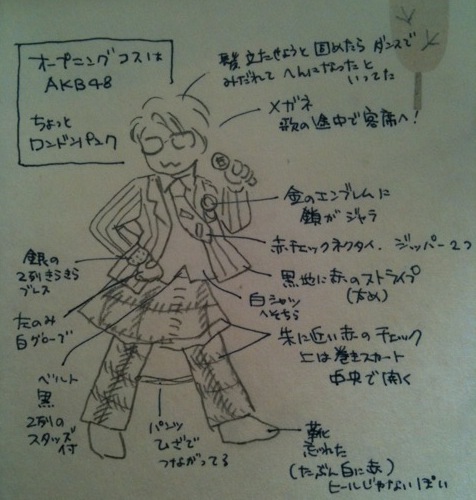 オープニングコスは
AKB48
ちょっと
ロンドンパンク
髪立たせようと固めたらダンスで
みだれてへんになったと
いってた
メガネ
歌の途中で客席へ!
金のエンブレムに
鎖がジャラ
赤チェックネクタイ、ジッパー2つ
黒地に赤のストライプ
(太め)
白シャツ
へそちら
朱に近い赤のチェック
上は巻きスカート
中央で開く
銀の
2列きらきら
ブレス
左のみ
白グローブ
ベルト
黒
2列の
スタッズ
付
パンツ
ひざで
つながってる
靴
忘れた
(たぶん白に赤)
ヒールじゃないっぽい